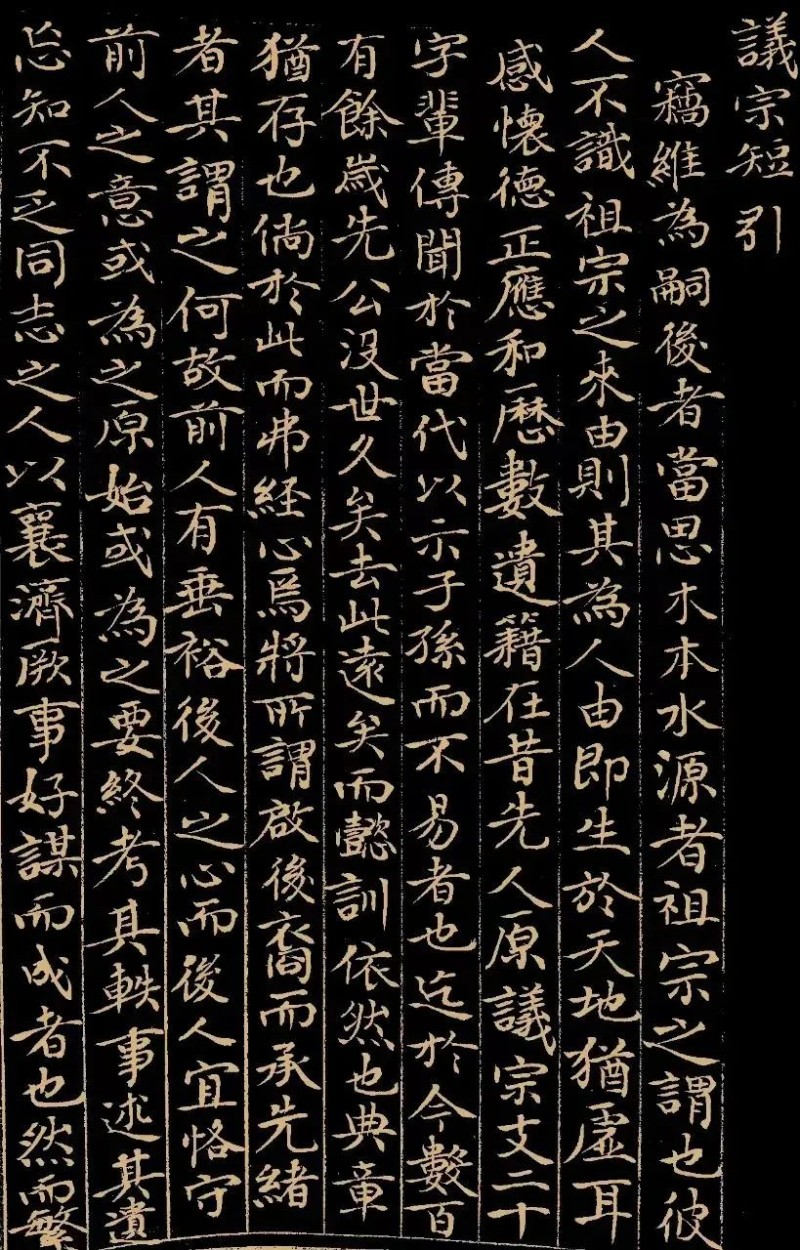 議宗短引
竊維為嗣後者當思木本水源者祖宗之謂也彼
人不識祖宗之來由則其為人由即生於天地猶虛耳
感懷德正應和曆數遺籍在昔先人原議宗支二十
字輩傳聞於當代以示子孫而不易者也迄於今數百
有餘歲先公沒世久矣去此遠矣而懿訓依然也典章
猶存也倘於此而弗経心焉將所謂啟後裔而承先緒
者其謂之何故前人有垂裕後人之心而後人宜恪守
前人之意或為之原始或為之要終考其軼事述其遺
忘知不乏同志之人以襄濟厥事好謀而成者也然而繁